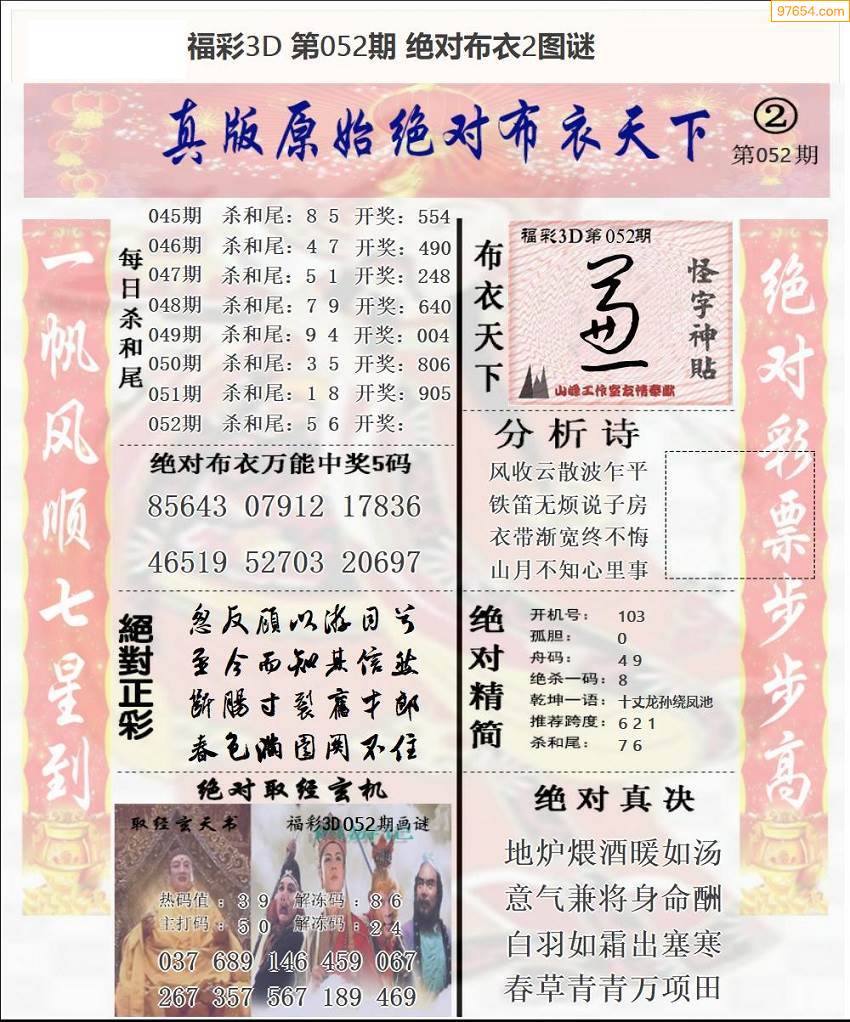 97654.com
福彩3D 第052期 绝对布衣2图谜
真版原始绝对布衣天下
②
第052期
一帆风顺七星到
每日杀和尾
045期 杀和尾：8 5 开奖：554
046期 杀和尾：4 7 开奖：490
047期 杀和尾：5 1 开奖：248
048期 杀和尾：7 9 开奖：640
049期 杀和尾：9 4 开奖：004
050期 杀和尾：3 5 开奖：806
051期 杀和尾：1 8 开奖：905
052期 杀和尾：5 6 开奖：
绝对布衣万能中奖5码
85643 07912 17836
46519 52703 20697
絕對正彩
忽反顾以游目兮
至今而知其信然
断肠寸裂旧牛郎
春色满园关不住
绝对取经玄机
取经玄天书
福彩3D052期画谜
热码值：3 9 解冻码：8 6
主打码：5 0 解冻码：2 4
037 689 146 459 067
267 357 567 189 469
布衣天下
福彩3D第052期
怪字神贴
山峰工作室友情奉献
分析诗
风收云散波乍平
铁笛无烦说子房
衣带渐宽终不悔
山月不知心里事
绝对精简
开机号： 103
孤胆： 0
舟码： 4 9
绝杀一码：8
乾坤一语：十丈龙孙绕凤池
推荐跨度：6 2 1
杀和尾： 7 6
绝对真决
地炉煨酒暖如汤
意气兼将身命酬
白羽如霜出塞寒
春草青青万项田
绝对彩票步步高